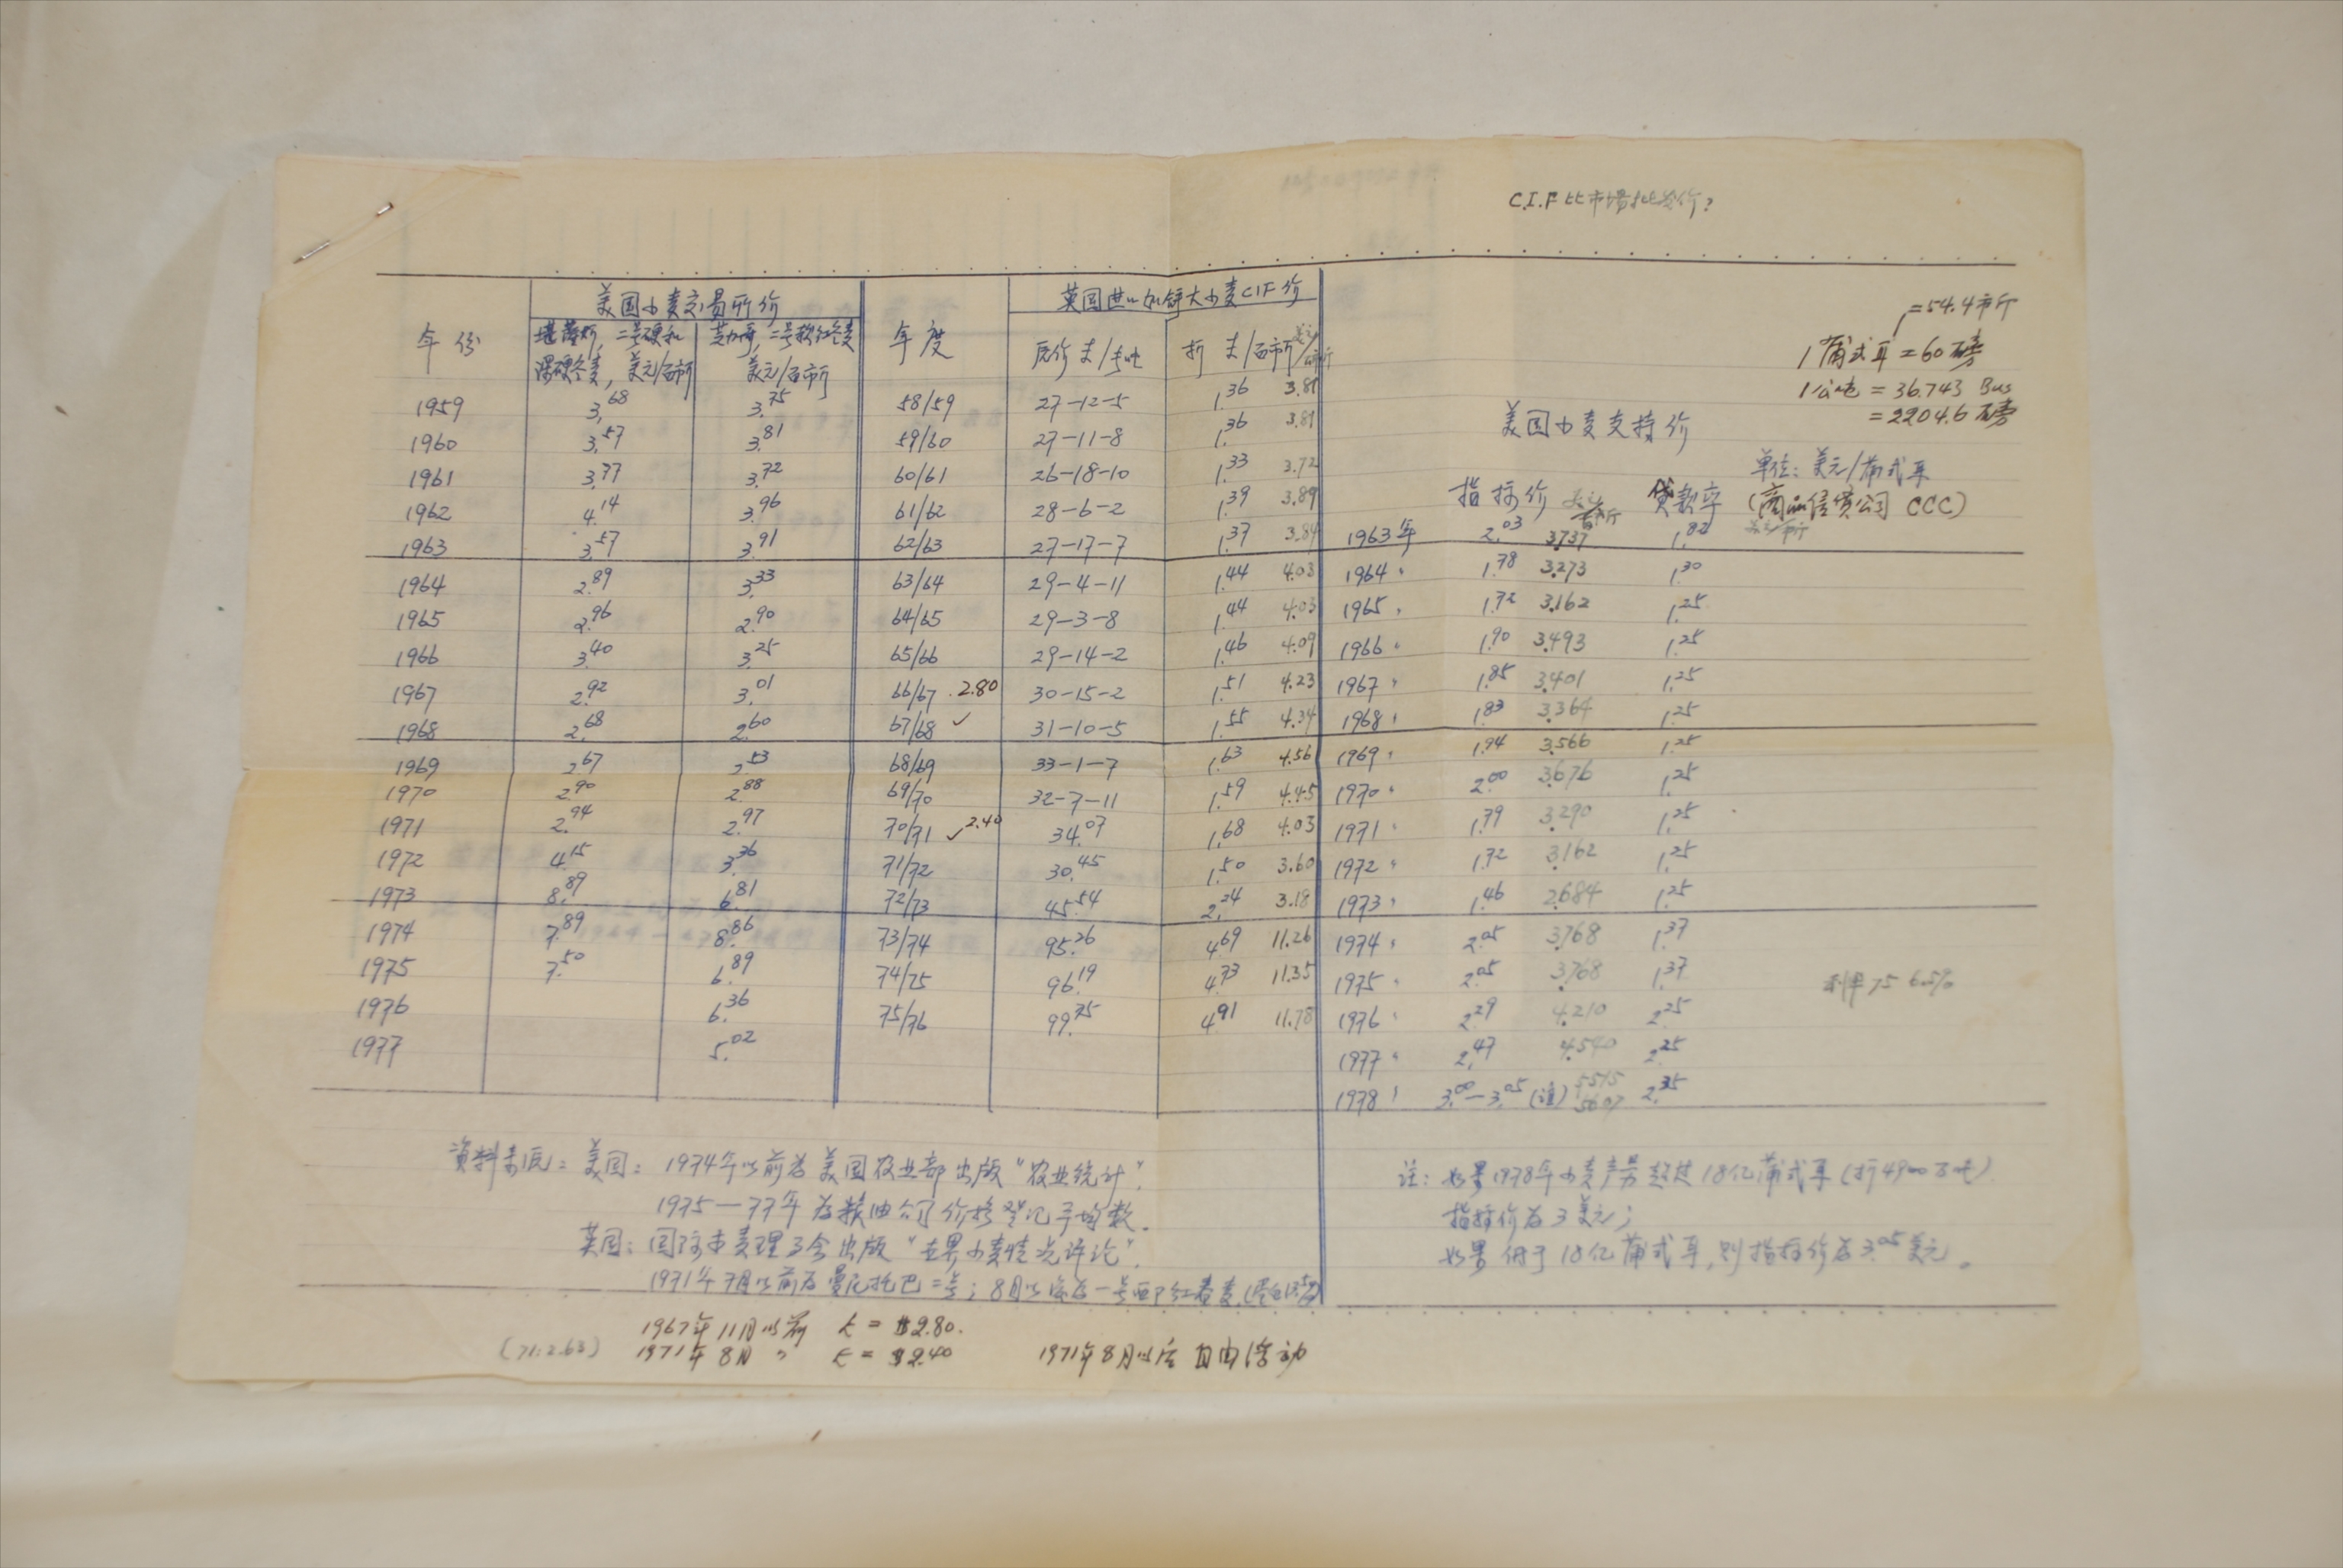 C.I.F 比市場批发价?
=54.4市斤
1蒲式耳=60磅
1公吨=36.743 Bus
=2204.6磅
美国小麦交易所价
英国进口加拿大小麦CIF价
年份
堪萨斯,二号硬和
深硬冬麦,美元/百市斤
芝加哥,二号软红冬麦
美元/百市斤
年度
原价 £/长吨
折 £/百市斤 美元/百市斤
美国小麦支持价
单位:美元/蒲式耳
指标价 美元/百市斤 贷款率 (商品信贷公司 CCC)
1959 3.68 3.75 58/59 27-12-5 1.36 3.81
1960 3.57 3.81 59/60 27-11-8 1.36 3.81
1961 3.77 3.72 60/61 26-18-10 1.33 3.72
1962 4.14 3.96 61/62 28-6-2 1.39 3.89
1963 3.57 3.91 62/63 27-17-7 1.37 3.84 1963年 2.03 3.737 1.82
1964 2.89 3.33 63/64 29-4-11 1.44 4.03 1964〃 1.78 3.273 1.30
1965 2.96 2.90 64/65 29-3-8 1.44 4.03 1965〃 1.72 3.162 1.25
1966 3.40 3.25 65/66 29-14-2 1.46 4.09 1966〃 1.90 3.493 1.25
1967 2.92 3.01 66/67 2.80 30-15-2 1.51 4.23 1967〃 1.85 3.401 1.25
1968 2.68 2.60 67/68 ✓ 31-10-5 1.55 4.34 1968〃 1.83 3.364 1.25
1969 2.67 2.53 68/69 33-1-7 1.63 4.56 1969〃 1.94 3.566 1.25
1970 2.90 2.88 69/70 32-7-11 1.59 4.45 1970〃 2.00 3.676 1.25
1971 2.94 2.97 70/71 ✓2.40 34.07 1.68 4.03 1971〃 1.79 3.290 1.25
1972 4.15 3.36 71/72 30.45 1.50 3.60 1972〃 1.72 3.162 1.25
1973 8.89 6.81 72/73 45.54 2.24 3.18 1973〃 1.46 2.684 1.25
1974 7.89 8.86 73/74 95.26 4.69 11.26 1974〃 2.05 3.768 1.37
1975 7.50 6.89 74/75 96.19 4.73 11.35 1975〃 2.05 3.768 1.37
利率75 6.5%
1976 6.36 75/76 99.75 4.91 11.78 1976〃 2.29 4.210 2.25
1977 5.02 1977〃 2.47 4.540 2.25
1978〃 3.00—3.05(注) 5.515 5.607 2.35
资料来源:美国:1974年以前为美国农业部出版"农业统计".
1975—77年为粮油公司价格登记平均数.
英国:国际小麦理事会出版"世界小麦情况评论".
1971年7月以前为曼尼托巴二号;8月以后为一号西部红春麦(蛋白13.5%)
注:如果1978年小麦产量超过18亿蒲式耳(折4900万吨)
指标价为3美元;
如果低于18亿蒲式耳,则指标价为3.05美元。
1967年11月以前 £=$2.80.
(71:2.63) 1971年8月〃 £=$2.40 1971年8月以后自由浮动